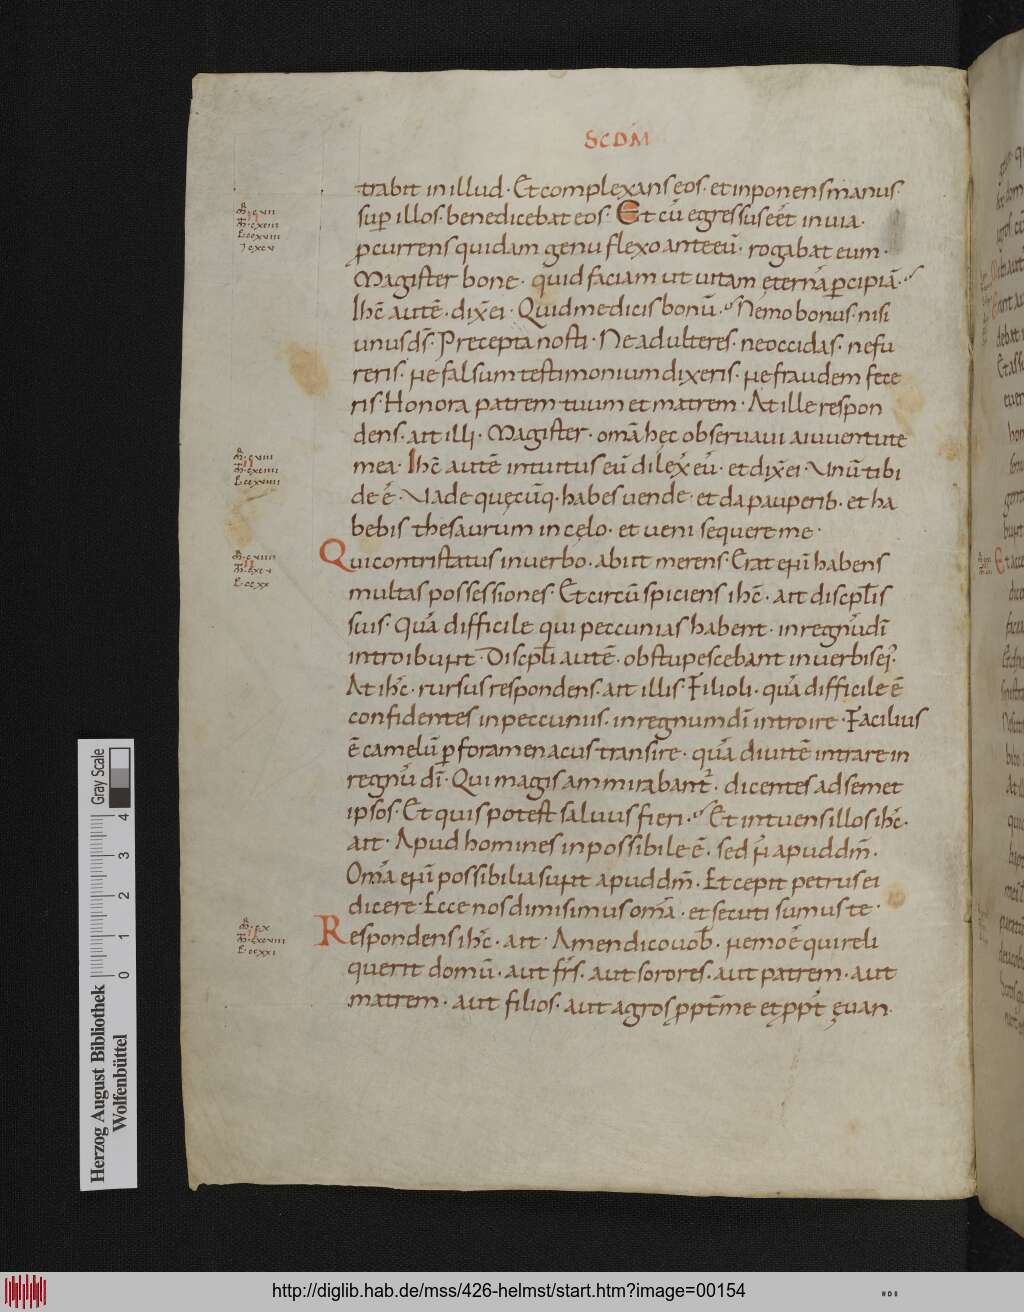 SCDM̅
trabit in illud. Et complexans eos. et inponens manus.
sup̲ illos. benedicebat eos. Et cū egressus eēt in uia.
p̲currens quidam genu flexo ante eū. rogabat eum.
Magister bone. quid faciam ut uitam ęternā p̲cipiā.
Ihc̄ autē. dix̄ ei. Quid me dicis bonū. Nemo bonus. nisi
unus ds̄. Precepta nosti. Ne adulteres. ne occidas. ne fu
reris. ne falsum testimonium dixeris. ne fraudem fece
ris. Honora patrem tuum et matrem. At ille respon
dens. ait illi. Magister. omā hęc obseruaui a iuuentute
mea. Ihc̄ autē intuitus eū dilex̄ eū. et dix̄ ei. Unū tibi
deē. Uade quęcūq. habes uende. et da pauperib. et ha
bebis thesaurum in cęlo. et ueni sequere me.
Qui contristatus in uerbo. abiit merens. Erat eni̅ habens
multas possessiones. Et circūspiciens ihc̄. ait discpl̅is
suis. Quā difficile qui peccunias habent. in regnū di̅
introibunt. Discpl̅i autē. obstupescebant in uerbis ei.
At ihc̄. rursus respondens. ait illis. Filioli. quā difficile ē
confidentes in peccuniis. in regnum di̅ introire. Facilius
ē camelū p̲ foramen acus transire. quā diuitē intrare in
regnū di̅. Qui magis ammirabant̄. dicentes ad semet
ipsos. Et quis potest saluus fieri. Et intuens illos ihc̄.
ait. Apud homines inpossibile ē. sed n̄ apud dm̄.
Omā eni̅ possibilia sunt apud dm̄. Et cepit petrus ei
dicere. Ecce nos dimisimus omā. et secuti sumus te.
Respondens ihc̄. ait. Amen dico uob̅. nemo ē qui reli
querit domū. aut frs̄. aut sorores. aut patrem. aut
matrem. aut filios. aut agros p̲pt̄ me et p̲pt̄ ęuan
Gray Scale
0 1 2 3 4
Herzog August Bibliothek
Wolfenbüttel
http://diglib.hab.de/mss/426-helmst/start.htm?image=00154